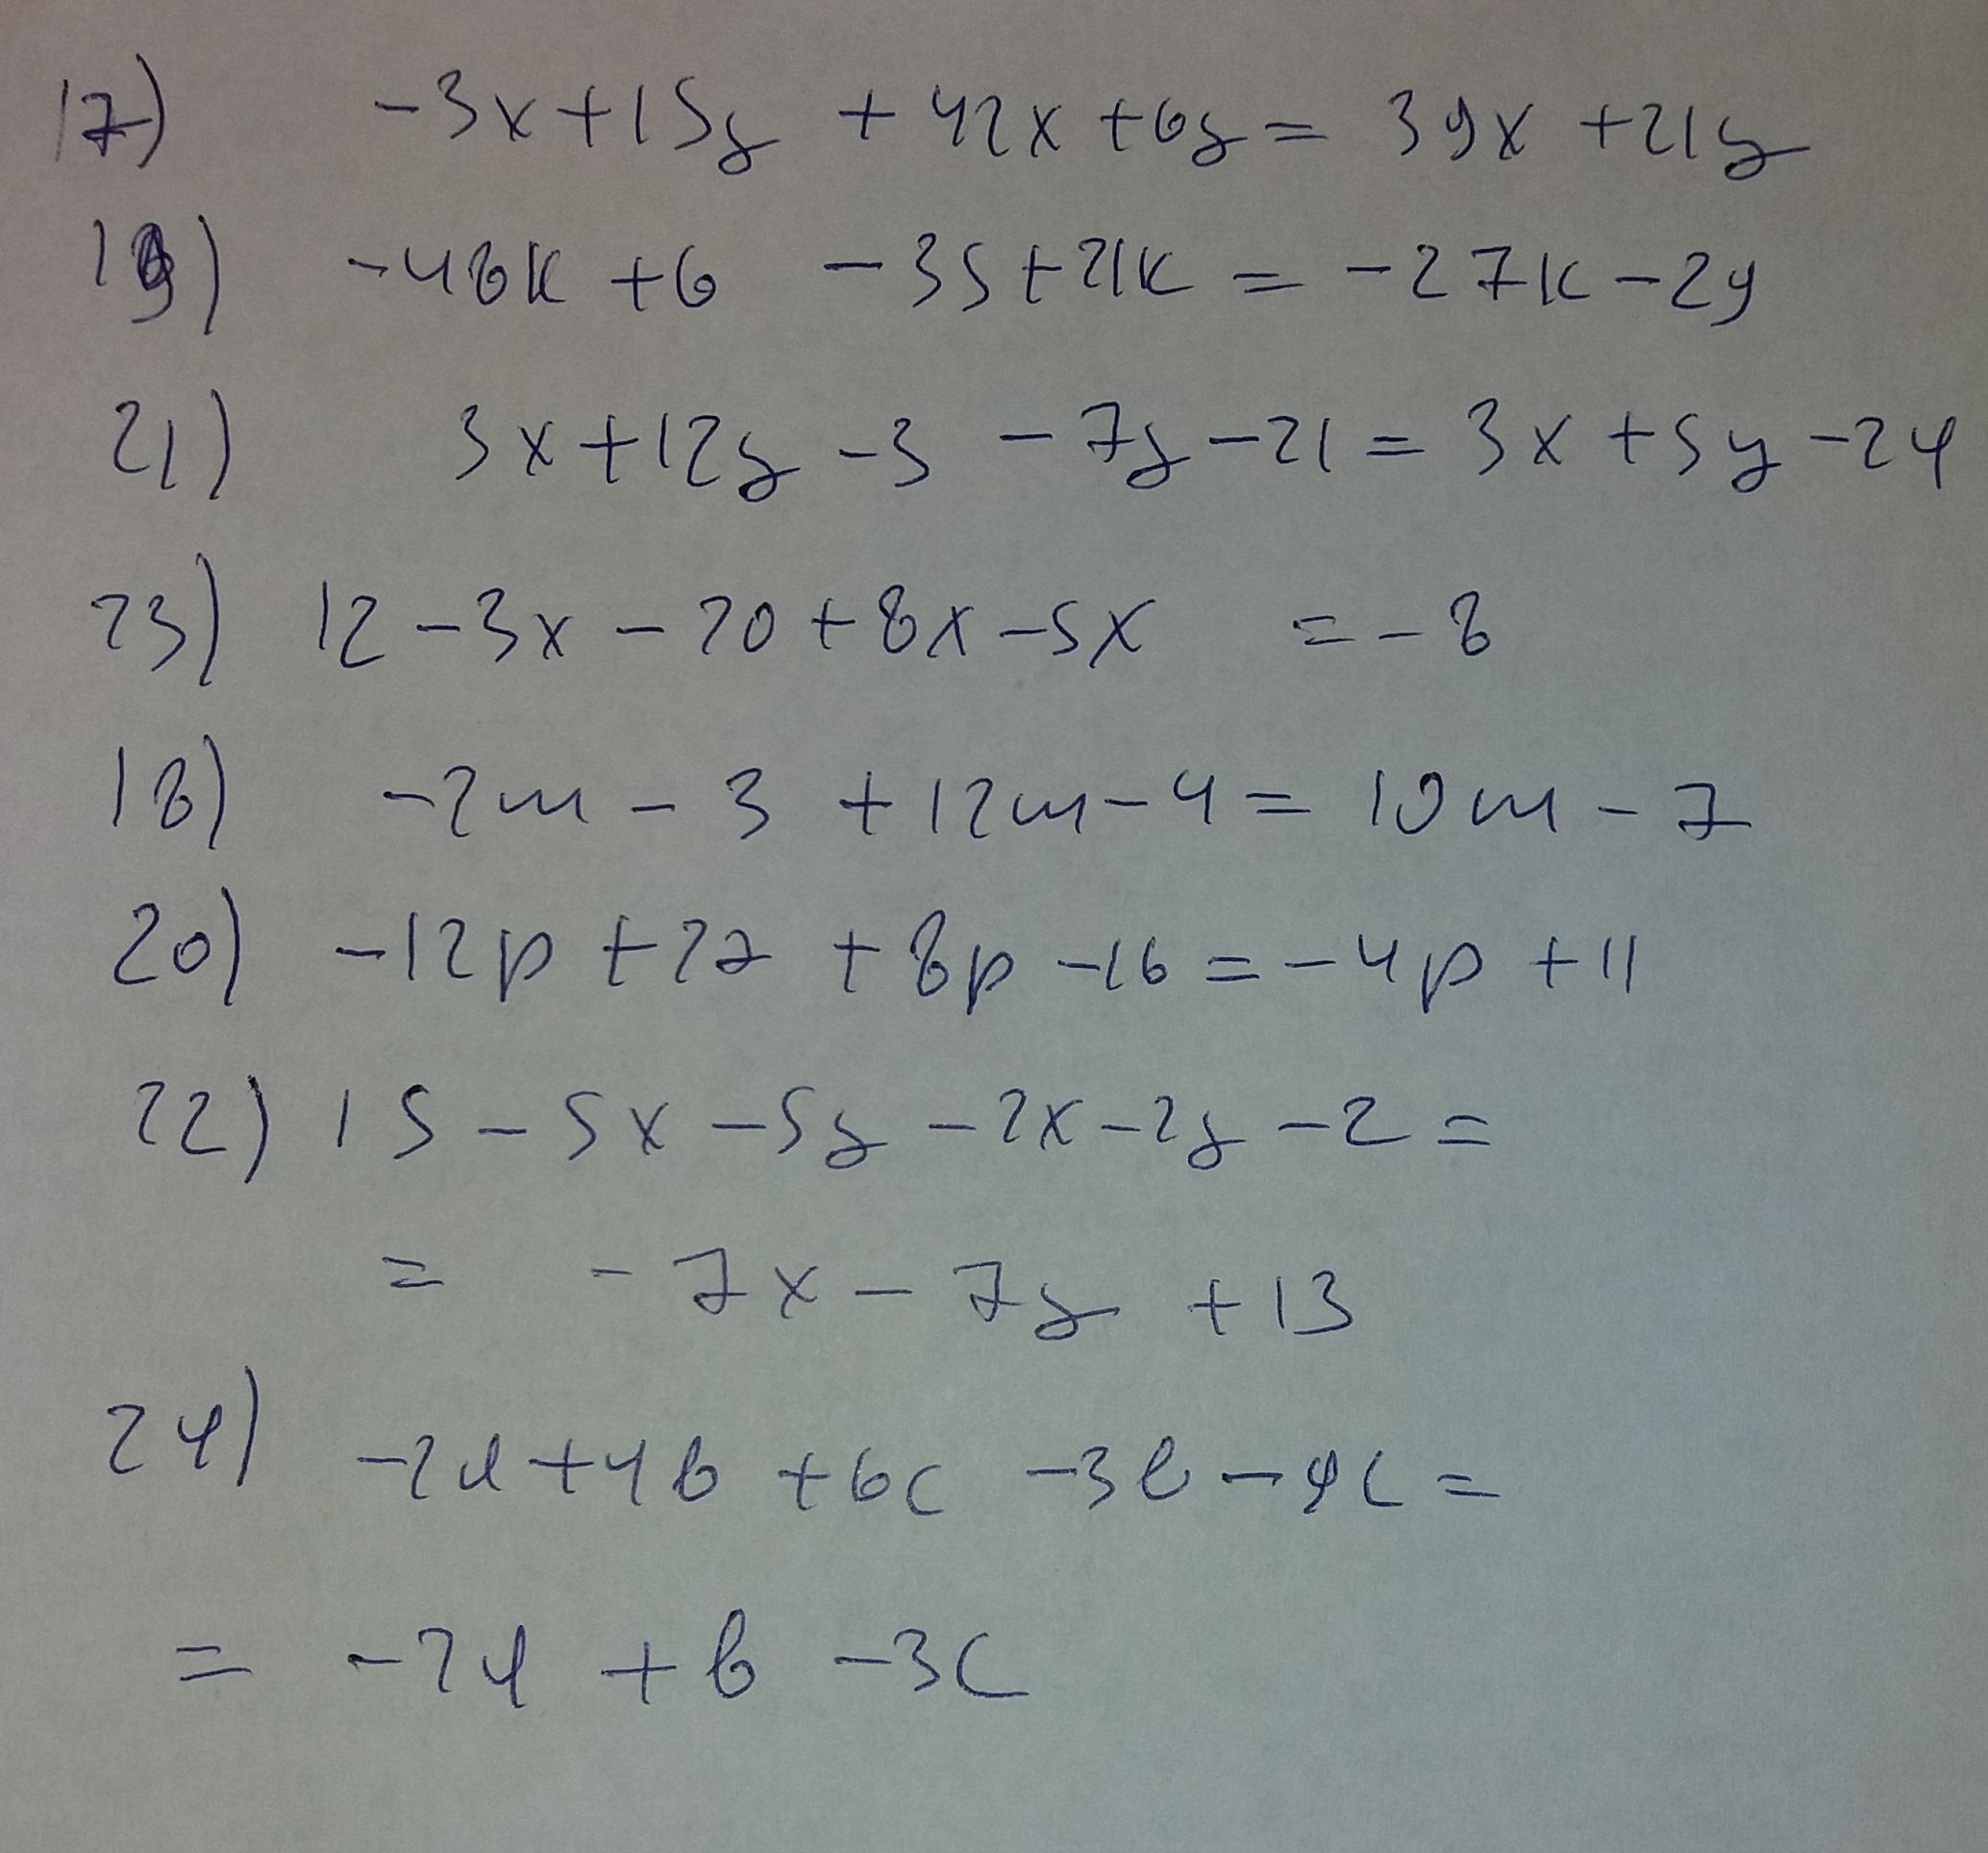 17) -3x+15y +42x+6y= 39x +21y
19) -48k +6 -35+21k = -27k-29
21) 3x+12y-3 -7y-21= 3x+5y-24
23) 12-3x-20+8x-5x =-8
18) -2m-3 +12m-4= 10m-7
20) -12p+27 +8p-16=-4p+11
22) 15-5x-5y-2x-2y-2=
= -7x-7y +13
24) -2a+4b +6c -3b-9c=
= -2a +b -3c